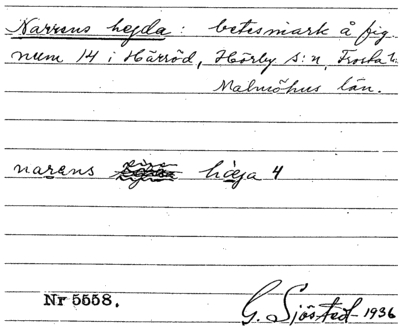 Narrens hejda: betesmark å fig.
num 14 i Härröd, Hörby s:n, Frosta h.
Malmöhus län.
narens häja 4
Nr 5558.
G. Sjöstedt 1936